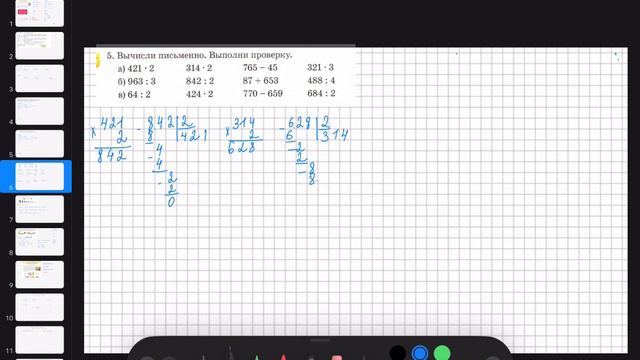 5. Вычисли письменно. Выполни проверку.
а) 421 · 2 314 · 2 765 − 45 321 · 3
б) 963 : 3 842 : 2 87 + 653 488 : 4
в) 64 : 2 424 · 2 770 − 659 684 : 2
× 421 − 842 2 × 314 − 628 2
2 8 421 2 6 314
842 − 4 628 − 2
4 2
− 2 − 8
2 8
0
1
2
3
4
5
6
7
8
9
10
11